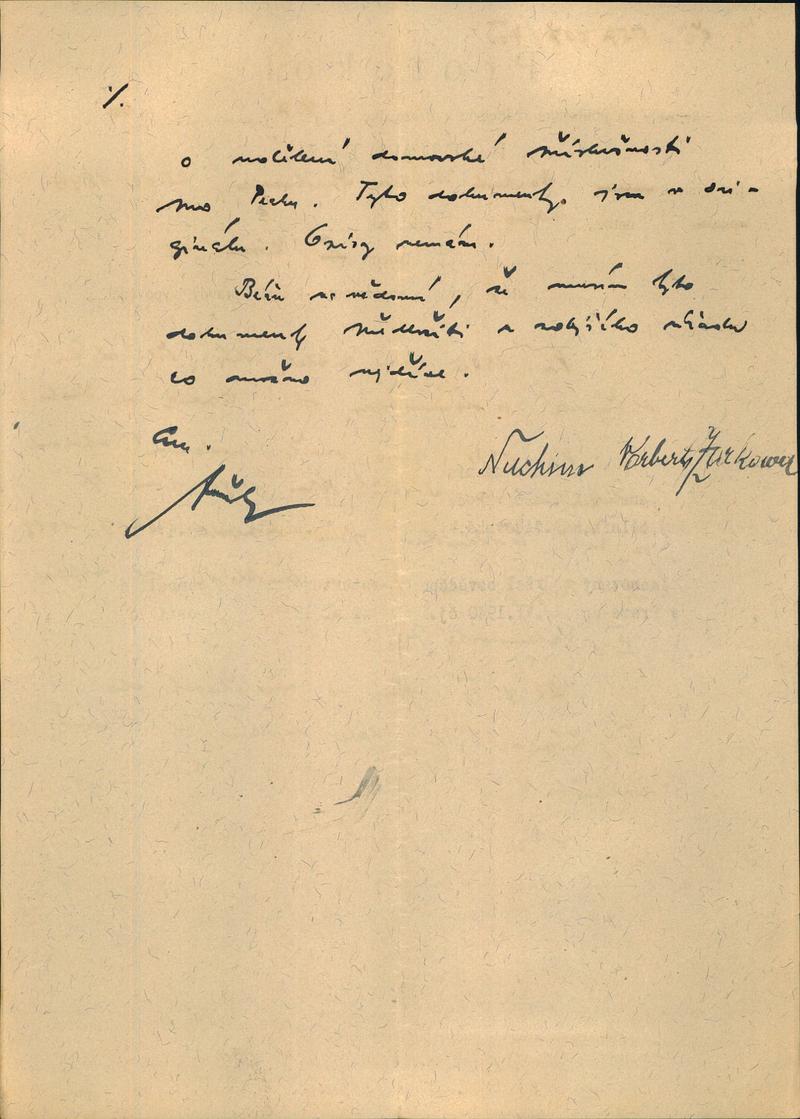 ./.
o udělení domovské příslušnosti
pro Prahu. Tyto dokumenty jsou v ori-
ginálu. Opisy nemám.
Beru na vědomí, že musím tyto
dokumenty předložiti u zdejšího úřadu
co možno nejdříve.
Nuchim Norbert Żurkower